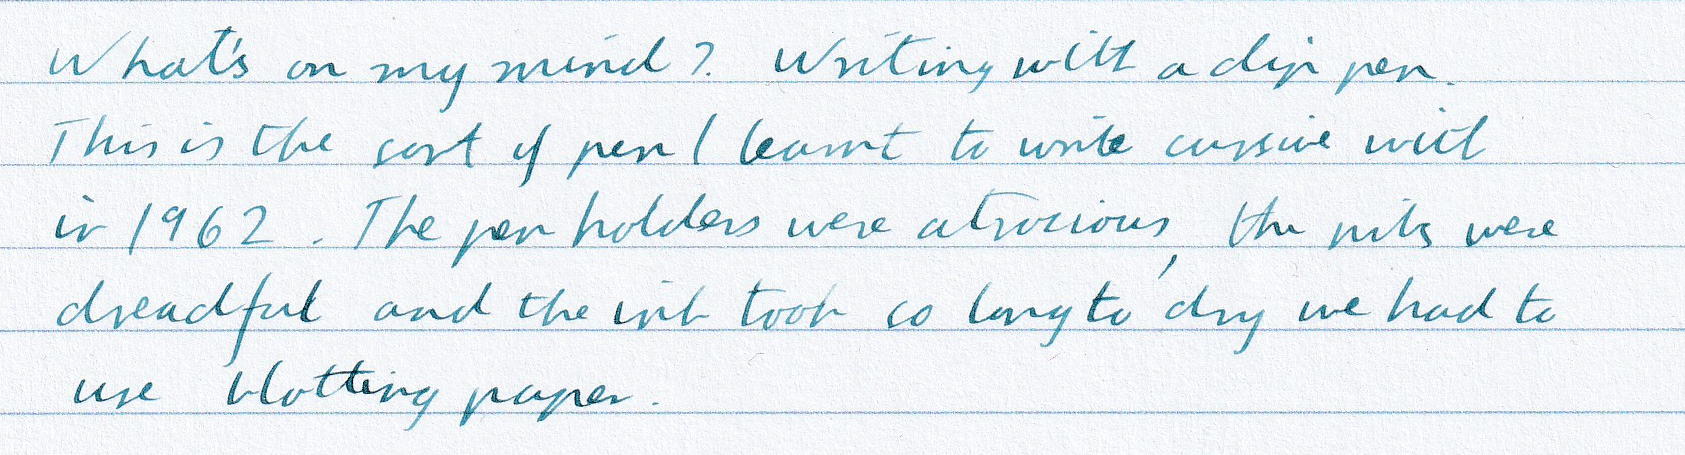 What's on my mind? Writing with a dip pen.
This is the sort of pen I learnt to write cursive with
in 1962. The pen holders were atrocious, the nibs were
dreadful and the ink took so long to dry we had to
use blotting paper.